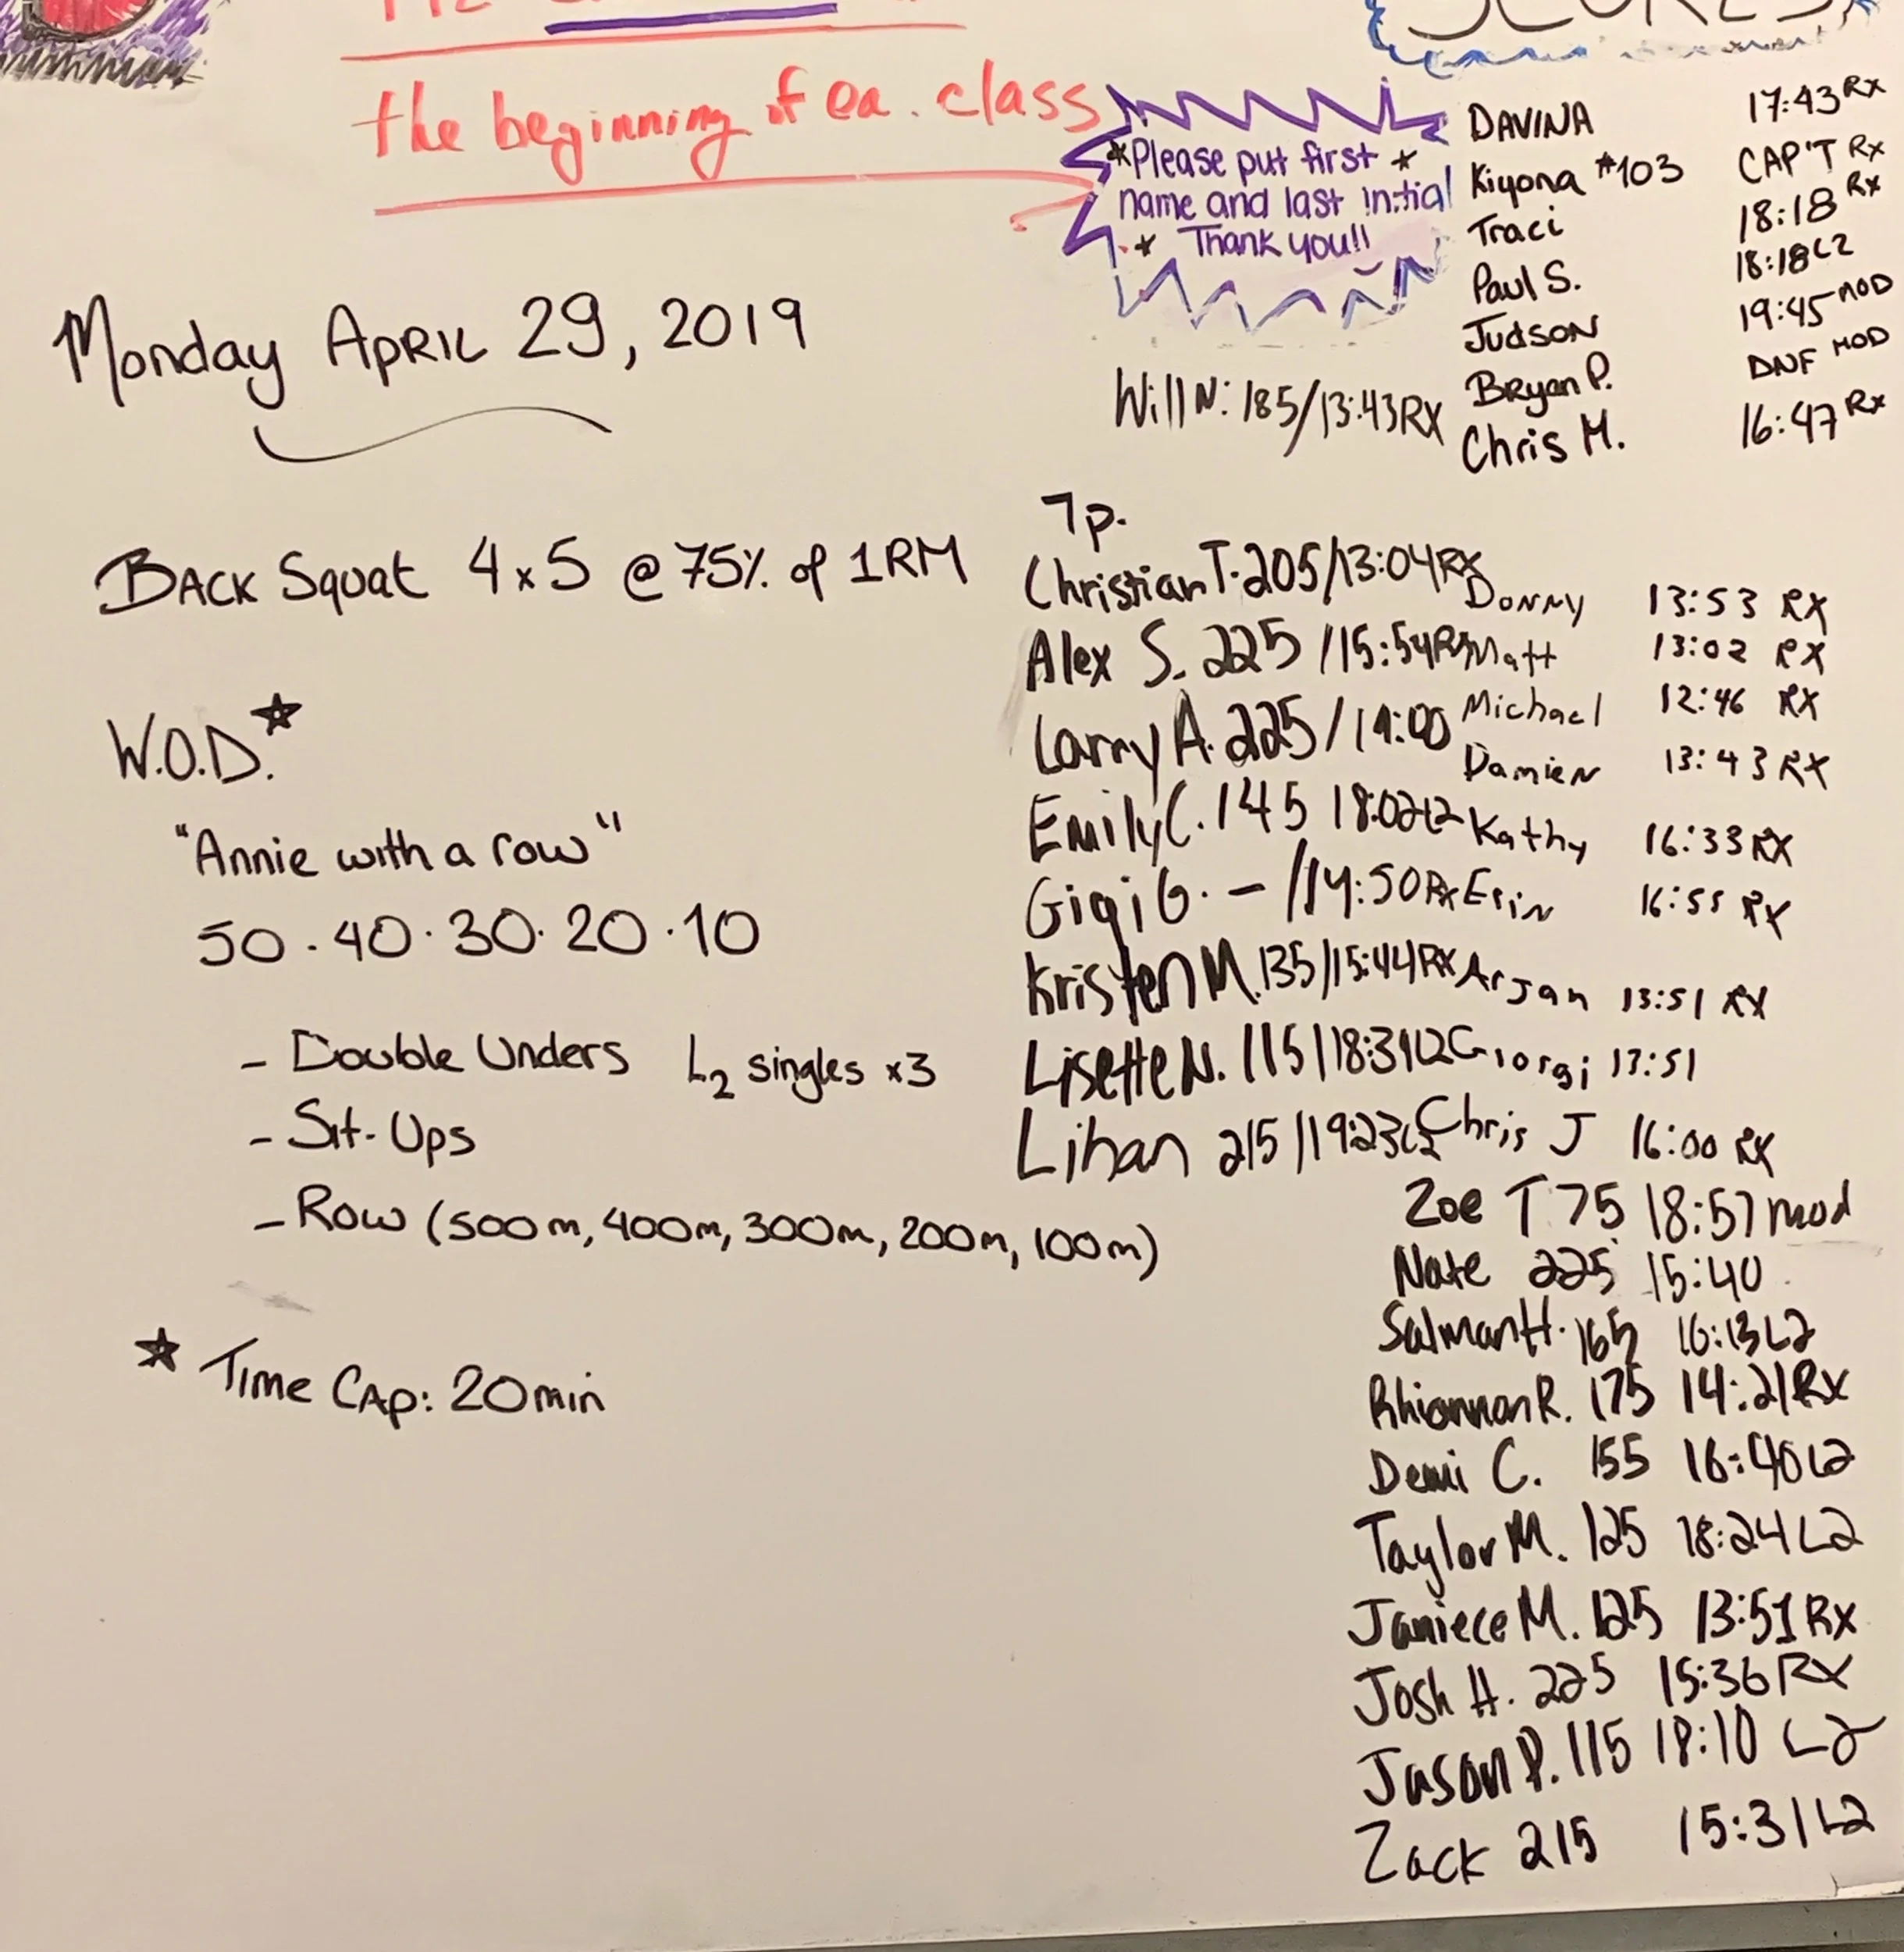 the beginning of ea. class
*Please put first *
name and last initial
* Thank you!!
SCORES
DAVINA 17:43 Rx
Kiyona #103 CAP'T Rx
Traci 18:18 Rx
Paul S. 18:18 L2
Judson 19:45 MOD
Bryan P. DNF MOD
Chris M. 16:47 Rx
Will N: 185/13:43 RX
Monday APRIL 29, 2019
BACK Squat 4x5 @ 75% of 1RM
W.O.D.*
"Annie with a row"
50 · 40 · 30 · 20 · 10
- Double Unders L2 singles x3
- Sit-Ups
- Row (500m, 400m, 300m, 200m, 100m)
* Time CAP: 20min
7p.
Christian T. 205/13:04 RX
Alex S. 225 /15:54 RX
Larry A. 225/14:00
Emily C. 145 18:02 L2
Gigi G. - /14:50 Rx
Kristen M. 135/15:44 RX
Lisette N. 115/18:39 L2
Lihan 215/19:23 L2
Donny 13:53 RX
Matt 13:02 RX
Michael 12:46 RX
Damien 13:43 RX
Kathy 16:33 RX
Erin 16:55 RX
Arjan 13:51 RX
Giorgi 17:51
Chris J 16:00 RX
Zoe T 75 18:57 mod
Nate 225 15:40
Salman H. 165 16:13 L2
Rhiannon R. 175 14:21 Rx
Demi C. 155 16:40 L2
Taylor M. 125 18:24 L2
Janiece M. 125 13:51 Rx
Josh H. 225 15:36 RX
Jason P. 115 18:10 L2
Zack 215 15:31 L2